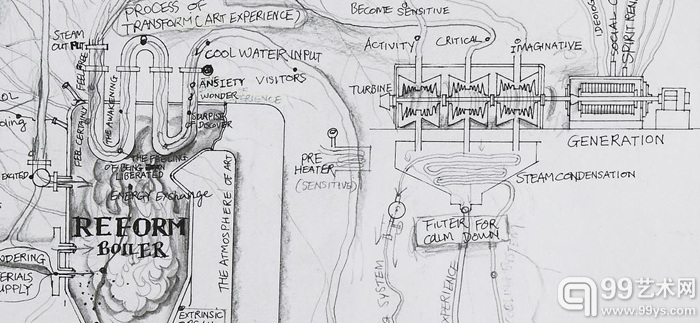 PROCESS OF
TRANSFORM (ART EXPERIENCE)
STEAM
OUT PUT
FEEL FREE
COOL WATER INPUT
ANXIETY
WONDER
VISITORS
EXPERIENCE
SURPRISE
OF DISCOVER
FEEL CERTAIN
THE AWAKENING
THE FEELING
OF BEING
LIBERATED
ENERGY EXCHANGE
EXCITED
REFORM
BOILER
THE ATMOSPHERE OF ART
SUPPLY
EXTRINSIC
PRE
HEATER
(SENSITIVE)
BECOME SENSITIVE
ACTIVITY
CRITICAL
IMAGINATIVE
TURBINE
GENERATION
STEAM CONDENSATION
FILTER FOR
CALM DOWN
SYSTEM
EXPERIENCE
SOCIAL
SPIRIT
99艺术网
www.99ys.com